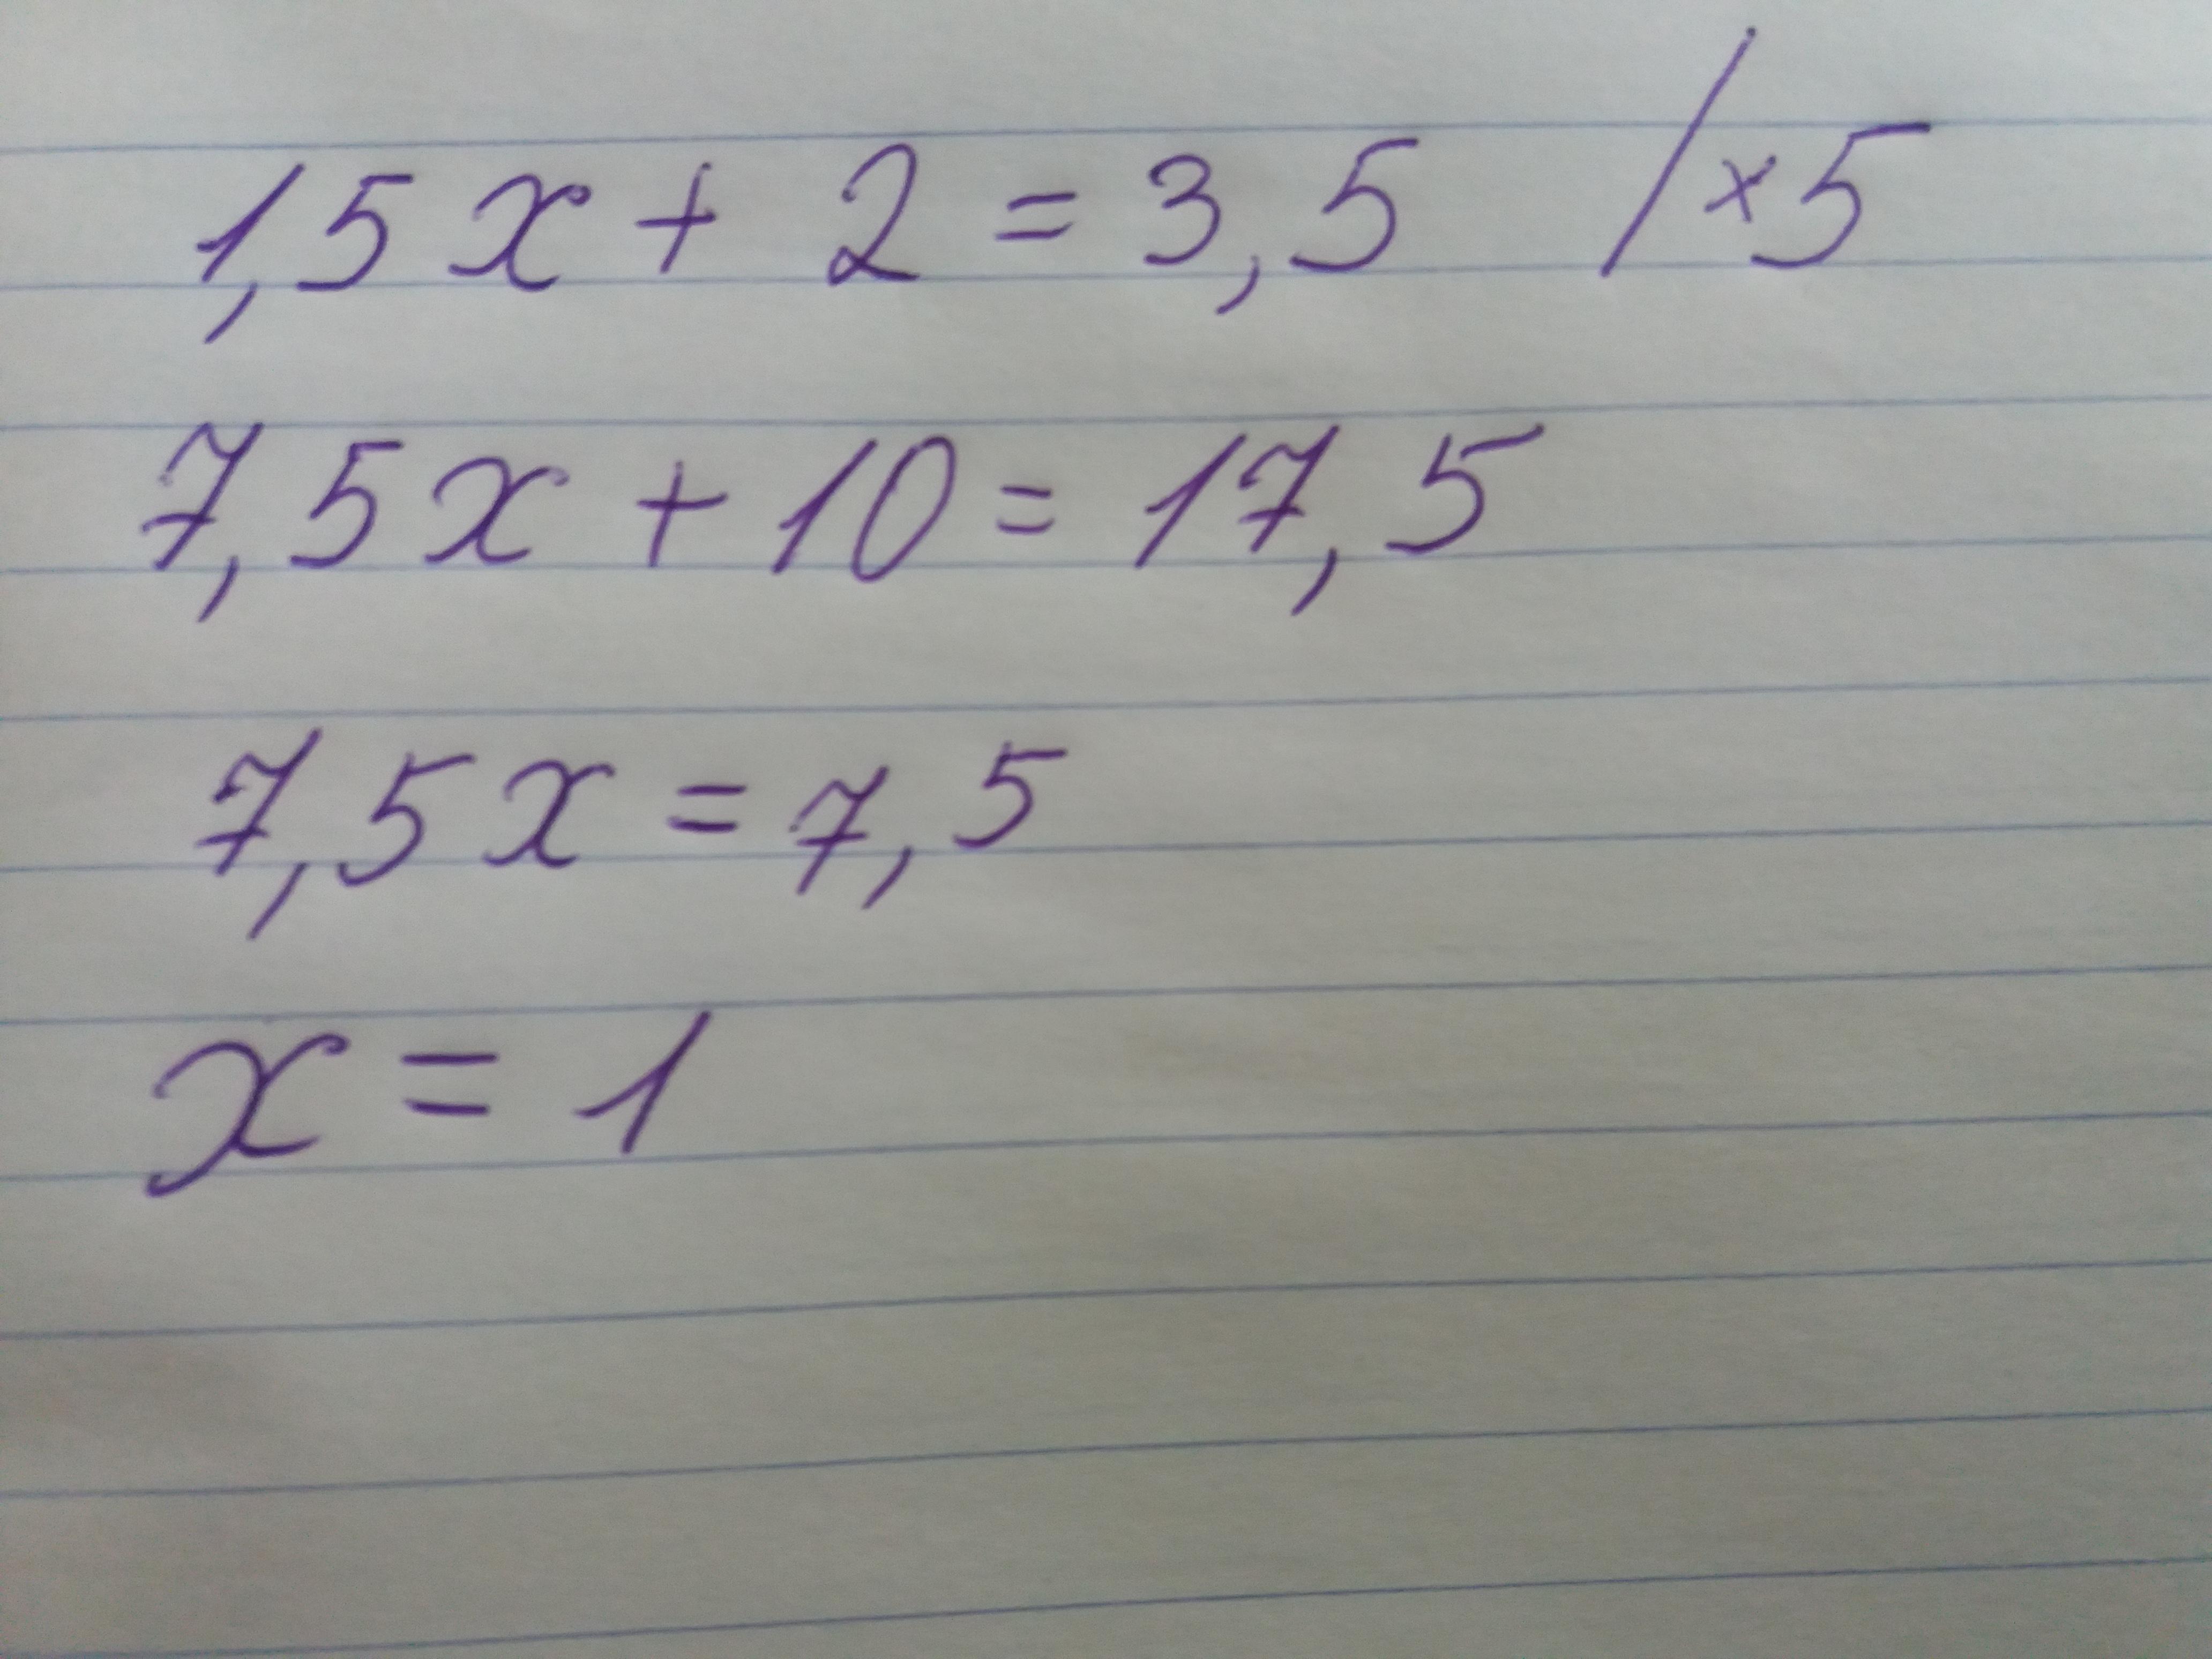 1,5x + 2 = 3,5 /×5
7,5x + 10 = 17,5
7,5x = 7,5
x = 1